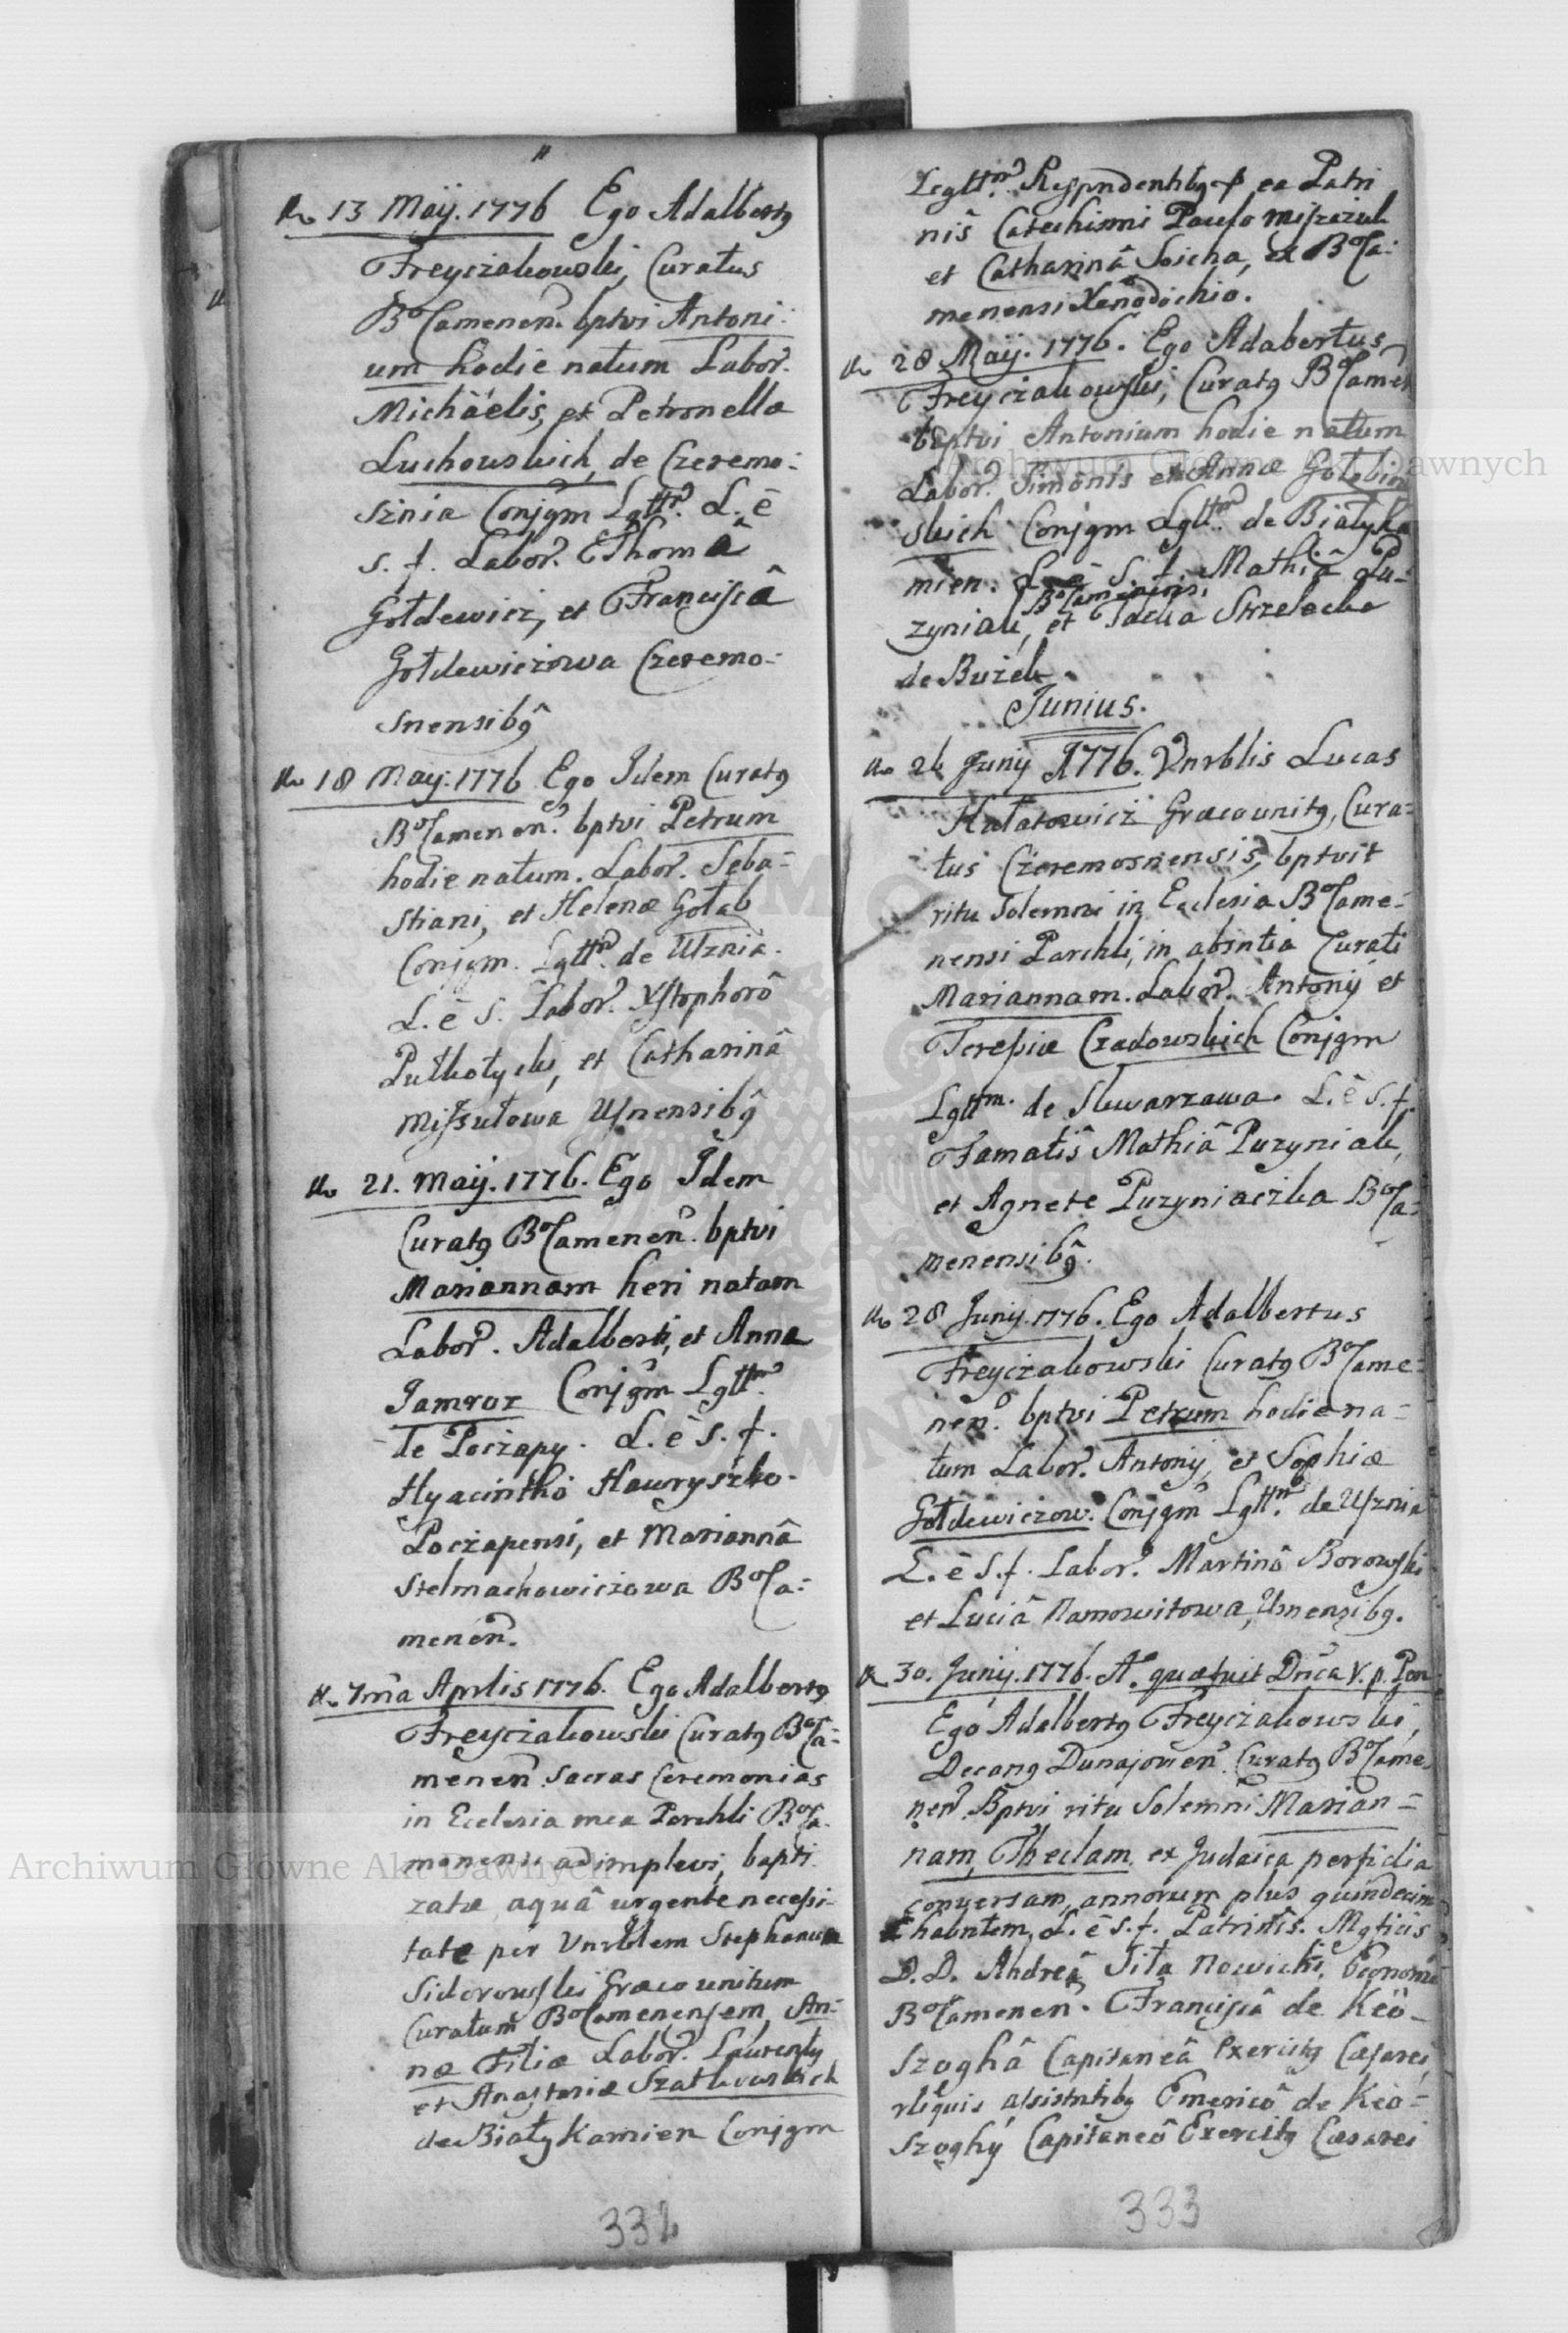 13 Maij. 1776 Ego Adalbertg
Freyczakowski, Curatus
BoCamenen. bptvi Antoni:
um hodie natum Labor.
Michäelis, et Petronellæ
Luchowskich, de Czeremo:
sznia Conjgm Lgttm. L. ê
s. f. Labor. Thomâ
Gołdewicz, et Franciscâ
Gołdewiczowa Czeremo:
snensibg
18 Maij. 1776 Ego Idem Curatg
BoCamenen. bptvi Petrum
hodie natum. Labor. Seba=
stiani, et Helenæ Gołab
Conjgm. Lgttm. de Uznia.
L. ê S. Labor. Xstophorô
Pułkotycki, et Catharinâ
Missułowa Usnensibg
21. Maij. 1776. Ego Idem
Curatg BoCamenen. bptvi
Mariannam heri natam
Labor. Adalberti, et Annæ
Jamroz Conjgm Lgttm.
de Poczapy. L. ê S. f.
Hyacinthô Hawryszko.
Poczapensi, et Mariannâ
Stelmachowiczowa BoCa=
menen.
7mâ Aprlis 1776. Ego Adalbertg
Freyczakowski Curatg BoCa=
menen. Sacras Ceremonias
in Ecclesia mea Parchli BoCa.
menensi adimplevi, bapti
zatæ aquâ urgente necessi-
tate per Vnrblem Stephanum
Sidorowski Græco unitum
Curatum BoCamenensem, An=
næ Filiæ Labor. Laurentij
et Anastasiæ Szatkowskich
de Białykamien Conjgm
332
Legttm. Respndentibg p ea Patri
nîs Catechismi Paulo
et Catharinâ Soicha, ex BoCa:
menensi Xenodochio.
28 Maij. 1776. Ego Adabertus
Freyczakowski, Curatg BoCamen
bptvi Antonium hodie natum
Labor. Simonis et Annæ Gołobiow
skich Conjgm Lgttm. de Białyka
mien. L. ê S. f. Mathiâ Pu=
BoCamenensi,
zyniak, et Jacka Strzelecka
de Buzek.
Junius.
26 Junij 1776. Vnrblis Lucas
Græcounitg, Cura=
tus Czeremosnensis, bptvit
ritu Solemni in Ecclesia BoCame=
nensi Parchli, in absntia Curati
Mariannam. Labor. Antonij et
Teresiæ Czadowskich Conjgm
Lgttm. de Skwarzawa. L. ê S. f.
Famatîs Mathiâ Puzyniak,
et Agnete Puzyniaczka BoCa=
menensibg.
28 Junij. 1776. Ego Adalbertus
Freyczakowski Curatg BoCame=
nen. bptvi Petrum hodie na=
tum Labor. Antonij, et Sophiæ
Gołdewiczow. Conjgm Lgttm. de Usznia
L. ê S. f. Labor. Martinô Borowski
et Luciâ Namowitowa, Usnensibg.
30. Junij. 1776. A. quæ fuit Dnica V. p. Pen
Ego Adalbertg Freyczakowski,
Decang Dunajovien. Curatg BoCame
nen. Bptvi ritu Solemni Marian=
nam, Theclam ex Judaica perfidia
conversam, annorum plus quindecim
habntem, L. ê s. f. Patrinîs. Mgficis
D. D. Andreâ Tita Nowicki, Œconomo
BoCamenen. Franciscâ de Keö-
szoghâ Capitaneâ Exercitg Cæsarei,
rliquis assistntibg Emericô de Keö=
szoghÿ Capitaneô Exercitg Cæsarei
333
Archiwum Główne Akt Dawnych
Archiwum Główne Akt Dawnych